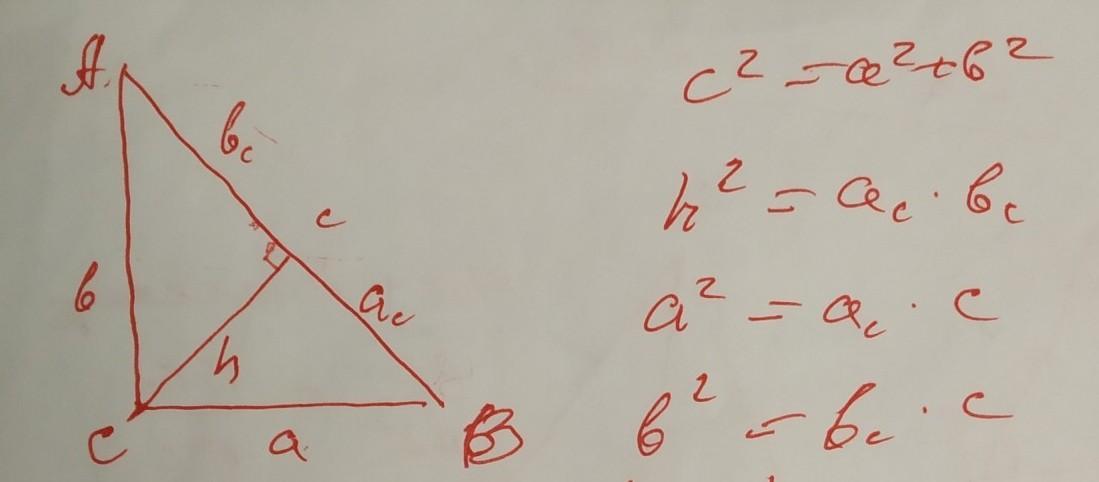 A
b_c
c
b
a_c
h
C
a
B
c² = a² + b²
h² = a_c · b_c
a² = a_c · c
b² = b_c · c